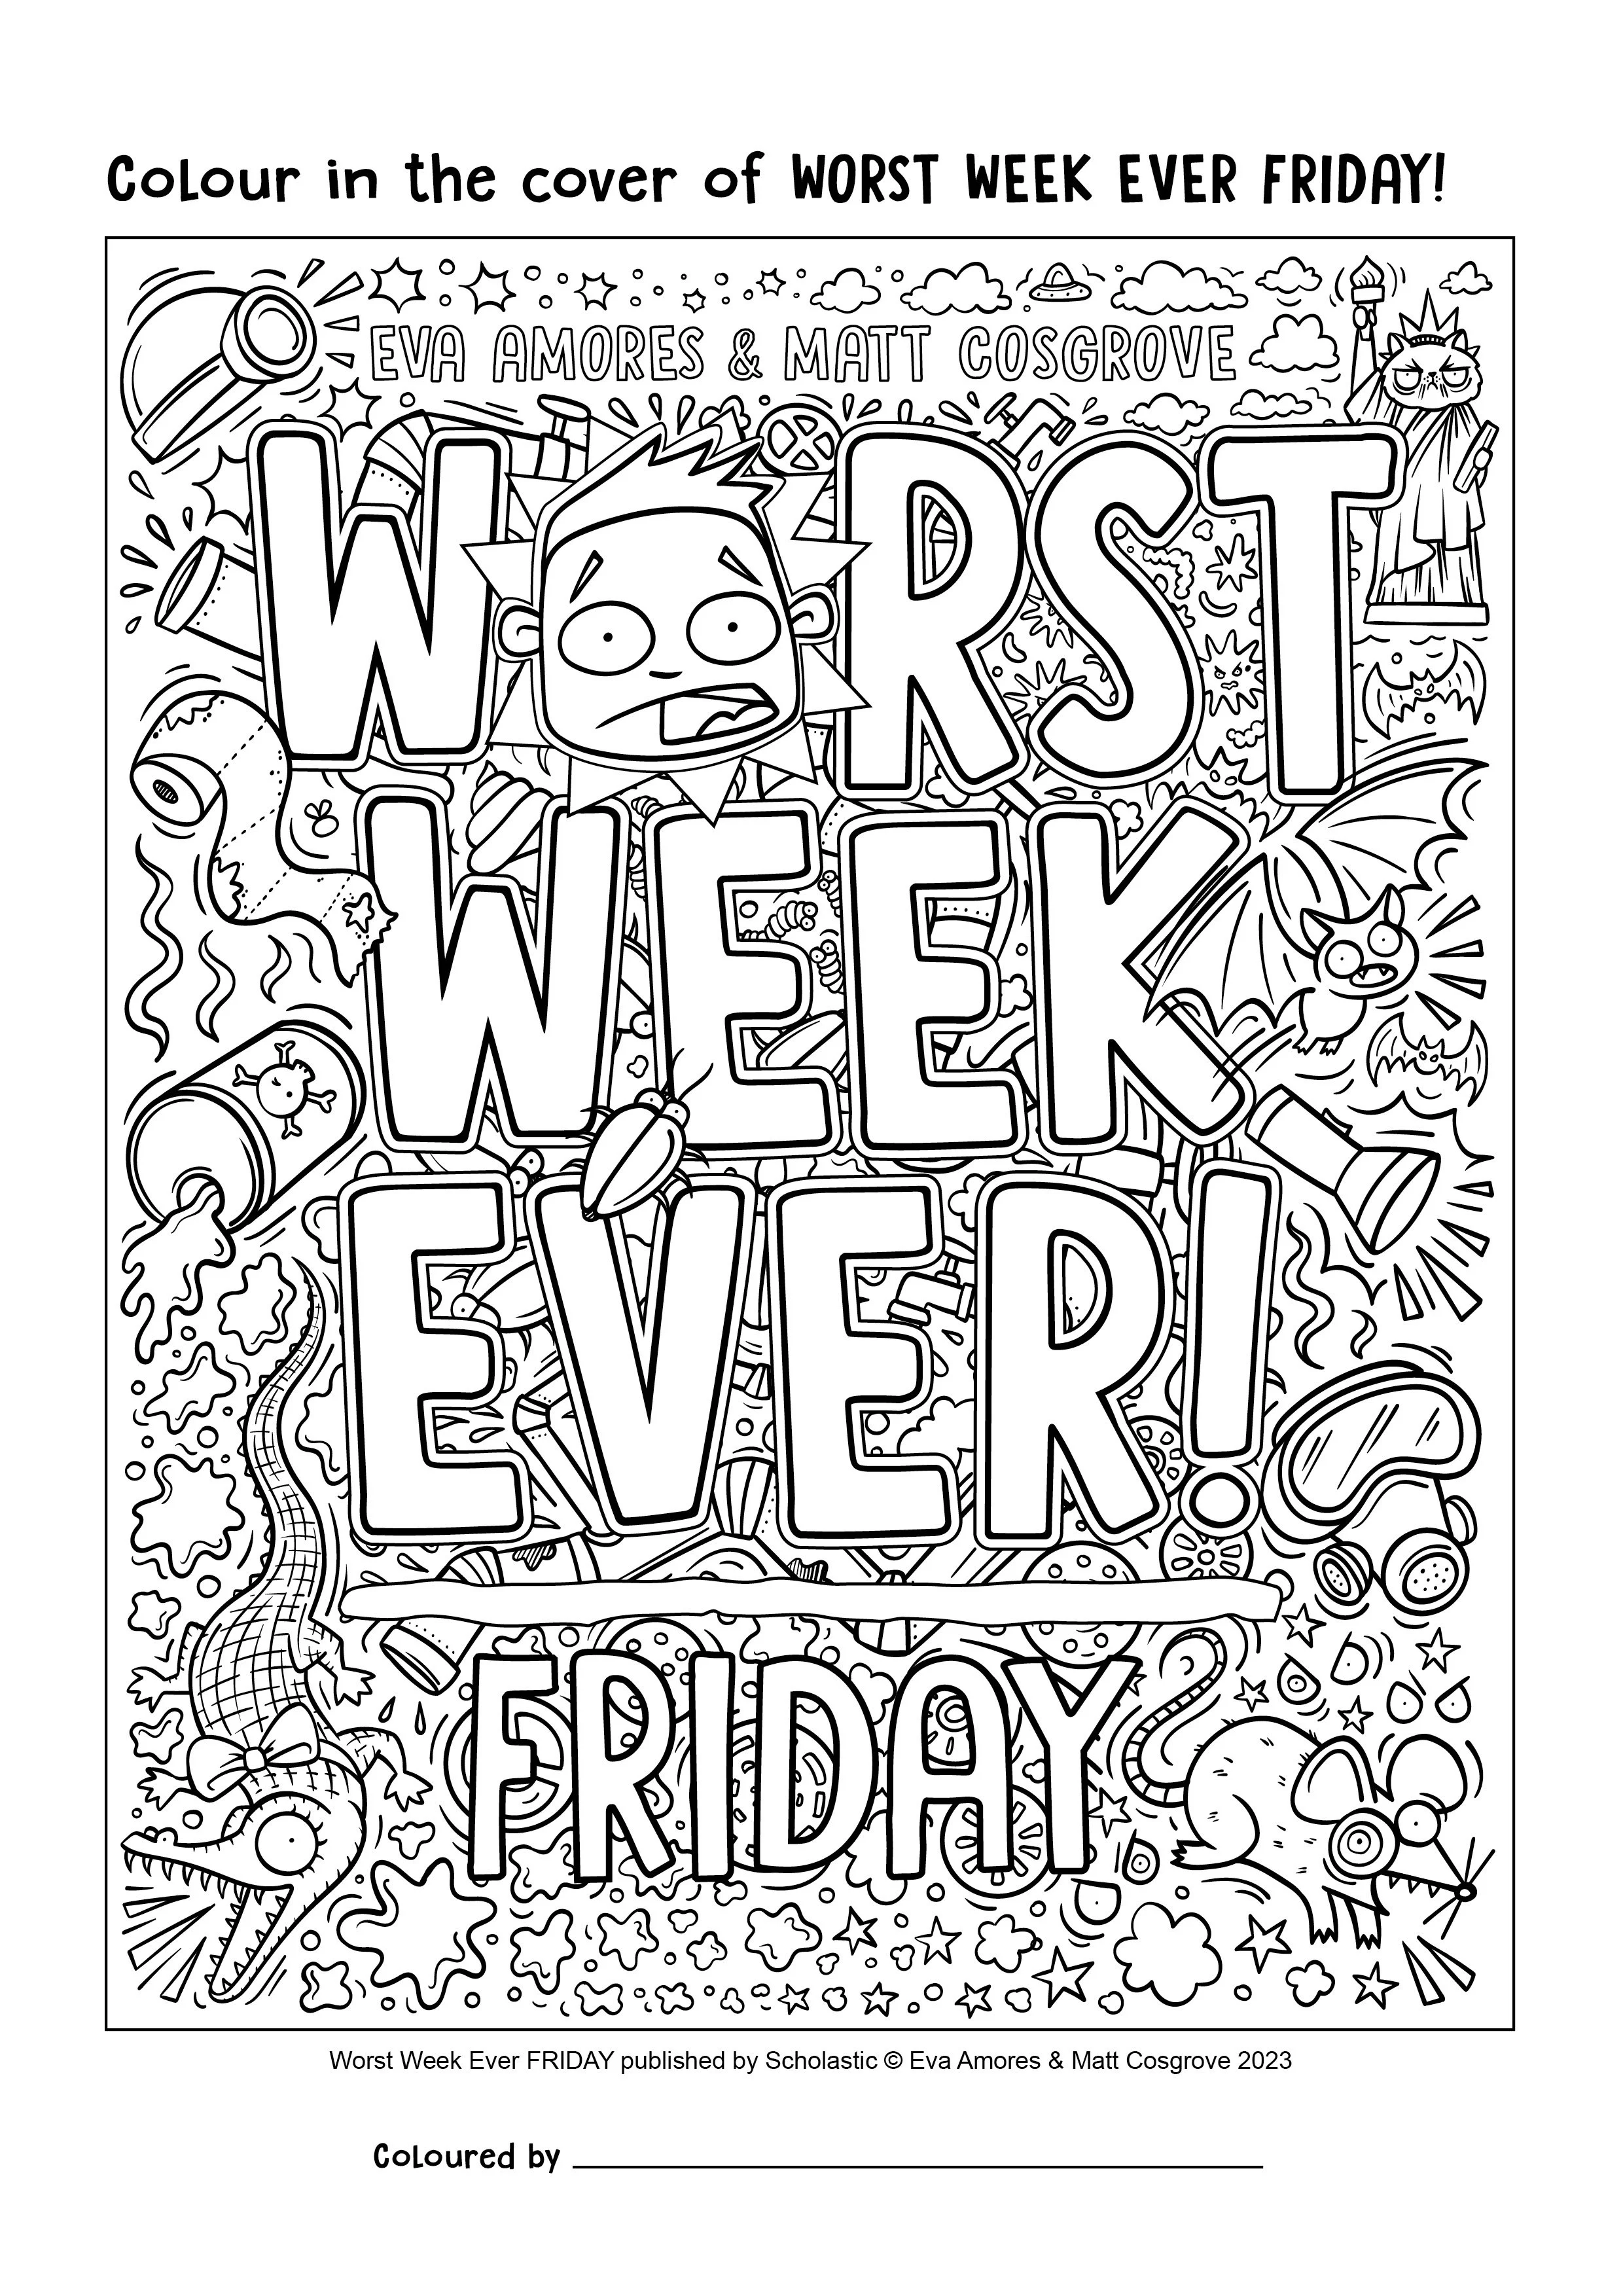 Colour in the cover of WORST WEEK EVER FRIDAY!
EVA AMORES & MATT COSGROVE
WORST
WEEK
EVER!
FRIDAY
Worst Week Ever FRIDAY published by Scholastic © Eva Amores & Matt Cosgrove 2023
Coloured by